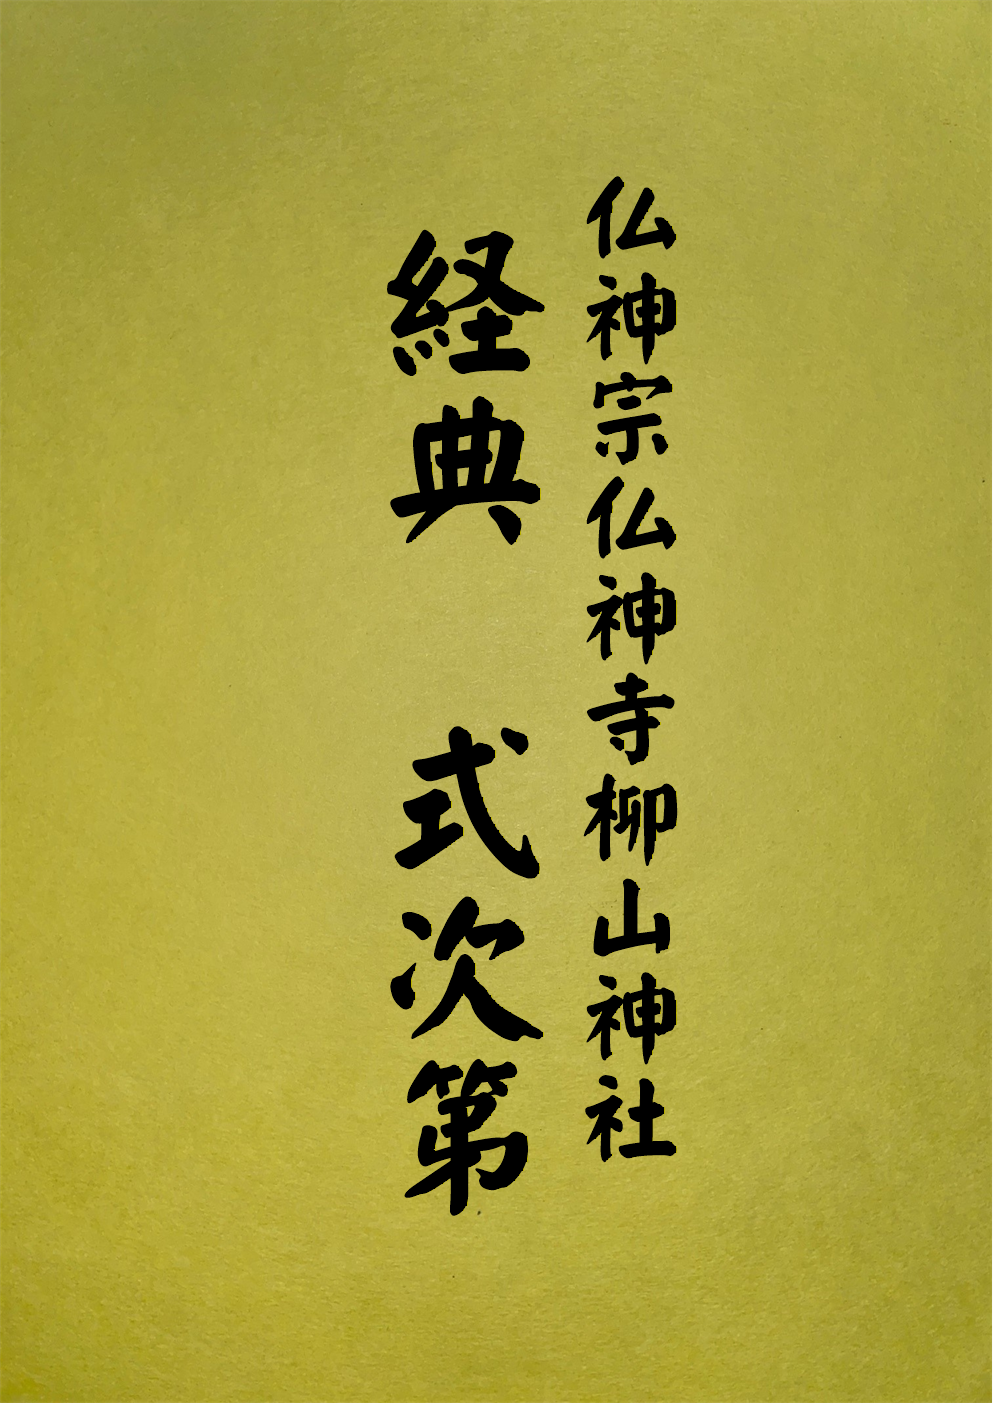 仏神宗仏神寺柳山神社
経典　式次第